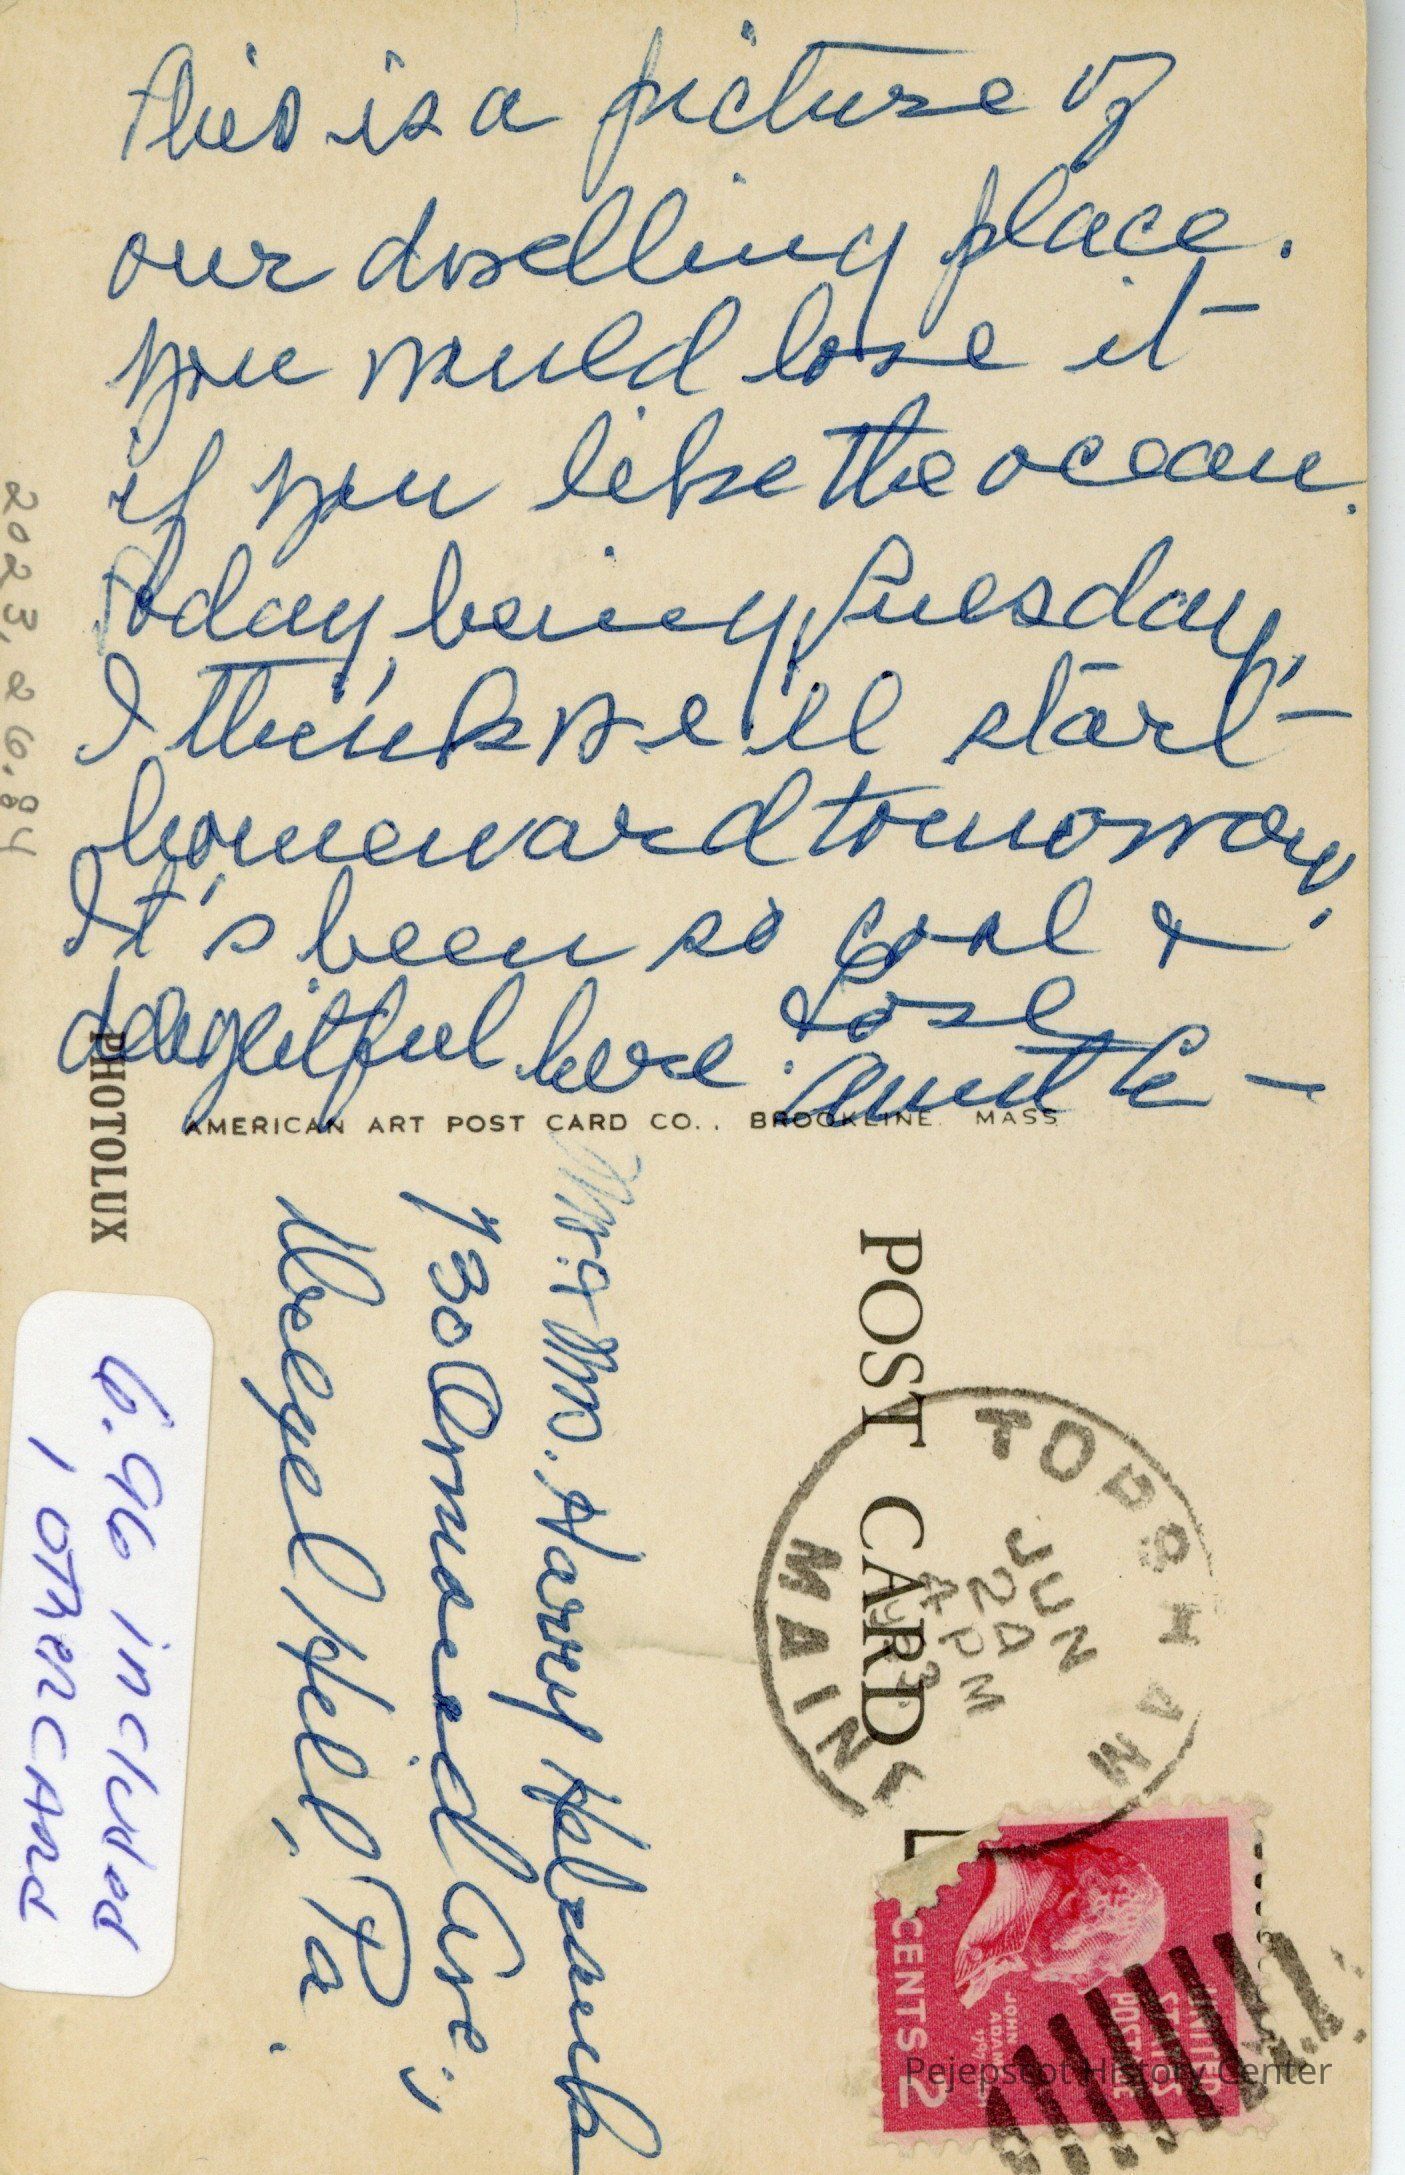 This is a picture of
our dwelling place.
you would love it
if you like the ocean.
Today, being Tuesday,
I think we'll start
homeward tomorrow.
It's been so cool &
delightful here.
Love
Aunt C
PHOTOLUX
AMERICAN ART POST CARD CO., BROOKLINE, MASS
POST CARD
Mr & Mrs. Harry
730 Ormond Ave.,
Drexel Hill, Pa.
TOPSHAM
JUN
24
PM
MAINE
UNITED
STATES
POSTAGE
JOHN
ADAMS
CENTS 2
2023.26.84
6.96 included
1 OTHER CARD
Pejepscot History Center